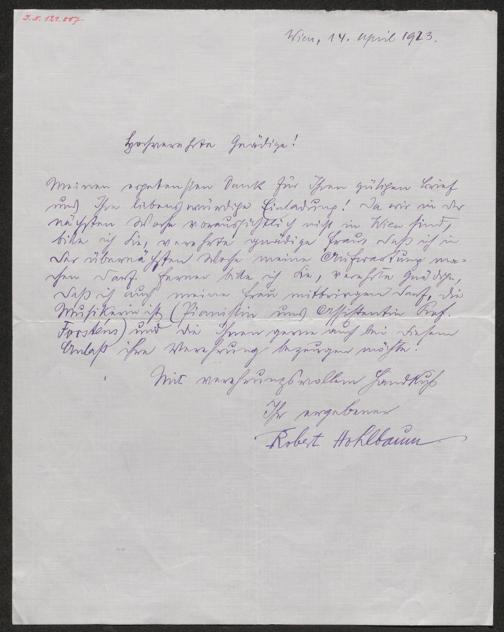 I.N. 129.007
Wien, 14. April 1923.
Hochverehrte Gnädige!
Meinen ergebensten Dank für Ihren gütigen Brief
und Ihre liebenswürdige Einladung! Da wir in der
nächsten Woche voraussichtlich nicht in Wien sind,
bitte ich Sie, verehrte gnädige Frau, daß ich in
der übernächsten Woche meine Aufwartung ma-
chen darf. Ferner bitte ich Sie, verehrte Gnädige,
daß ich auch meine Frau mitbringen darf, die
Musikerin ist (Pianistin und Assistentin Prof.
) und die Ihnen gerne auch bei diesem
Anlaß ihre Verehrung bezeugen möchte.
Mit verehrungsvollem Handkuß
Ihr ergebener
Robert Hohlbaum